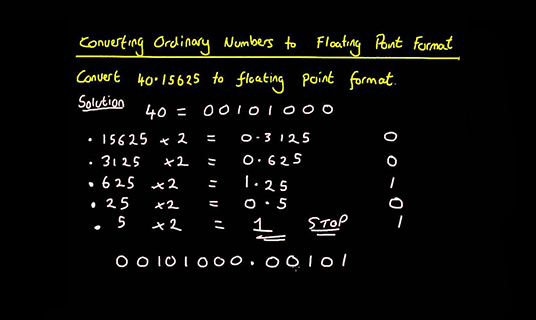 Converting Ordinary Numbers to Floating Point Format
Convert 40.15625 to floating point format.
Solution
40 = 00101000
.15625 x 2 = 0.3125 0
.3125 x2 = 0.625 0
.625 x2 = 1.25 1
.25 x2 = 0.5 0
.5 x2 = 1 STOP 1
00101000.00101